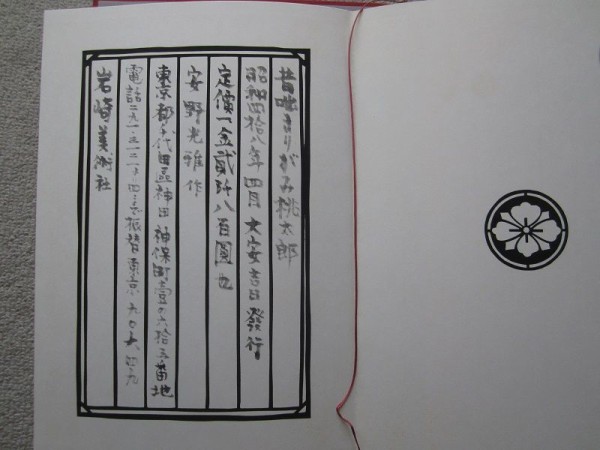 昔咄きりがみ桃太郎
昭和四拾八年四月大安吉日發行
定價一金貳阡八百圓也
安野光雅作
東京都千代田區神田神保町壹の六拾五番地
電話二九一・三一二 振替東京九〇六四九
岩崎美術社